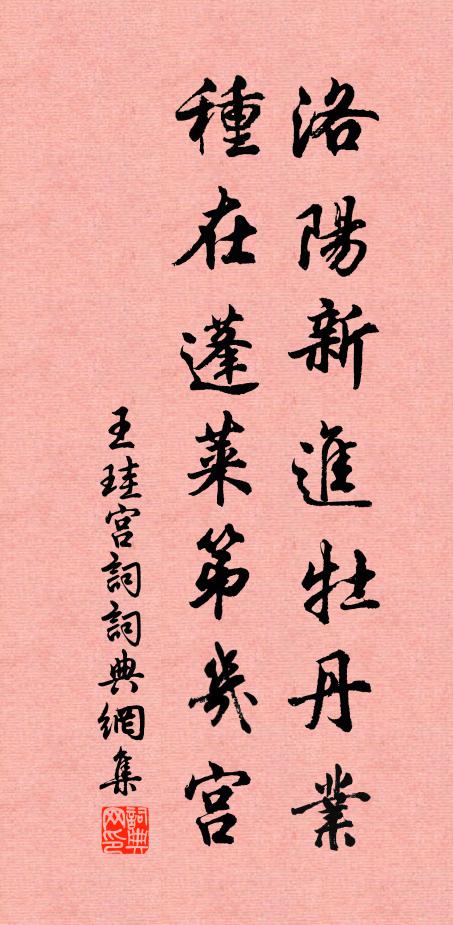 洛陽新進牡丹業
種在蓬萊第幾宮
王珪宮詞詞典網集
詞典网印